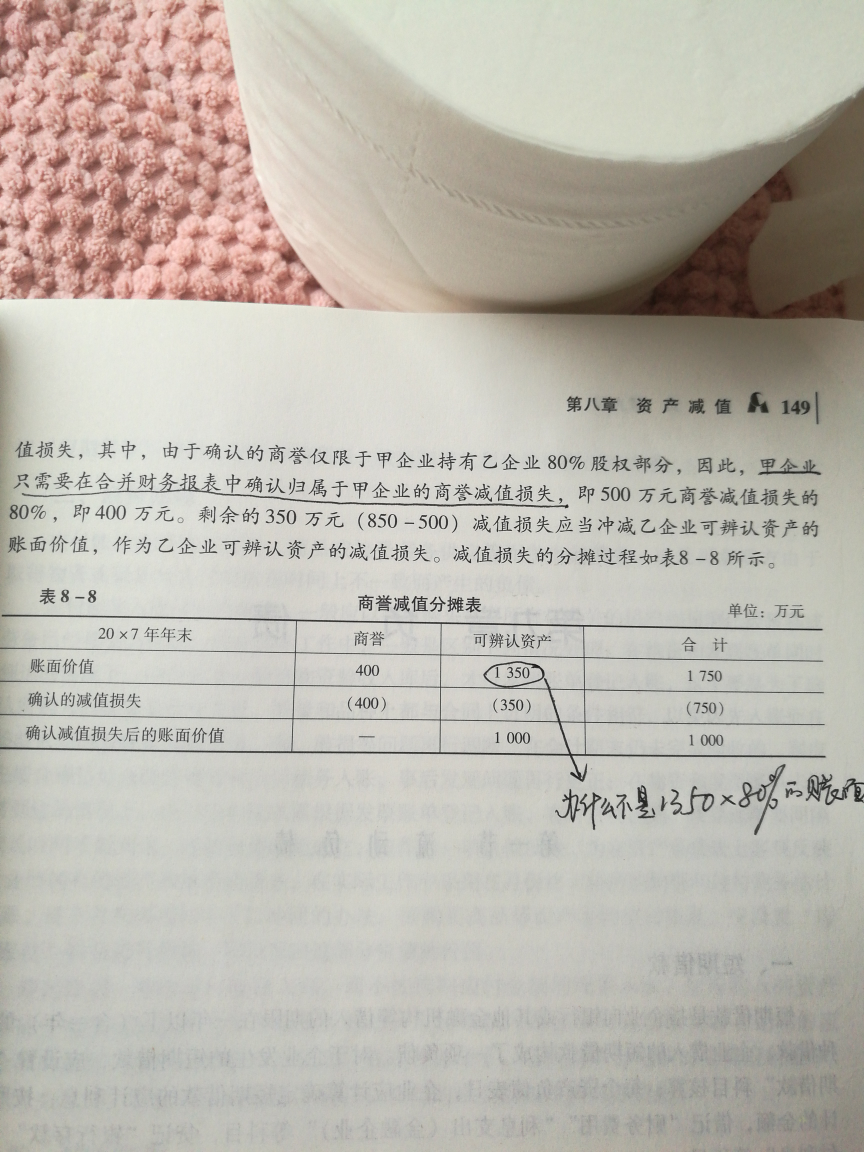 第八章 资产减值 149
值损失，其中，由于确认的商誉仅限于甲企业持有乙企业80%股权部分，因此，甲企业
只需要在合并财务报表中确认归属于甲企业的商誉减值损失，即500万元商誉减值损失的
80%，即400万元。剩余的350万元（850-500）减值损失应当冲减乙企业可辨认资产的
账面价值，作为乙企业可辨认资产的减值损失。减值损失的分摊过程如表8-8所示。
表8-8 商誉减值分摊表 单位：万元
20×7年年末 商誉 可辨认资产 合计
账面价值 400 1 350 1 750
确认的减值损失 (400) (350) (750)
确认减值损失后的账面价值 — 1 000 1 000
为什么不是1350×80%的账面